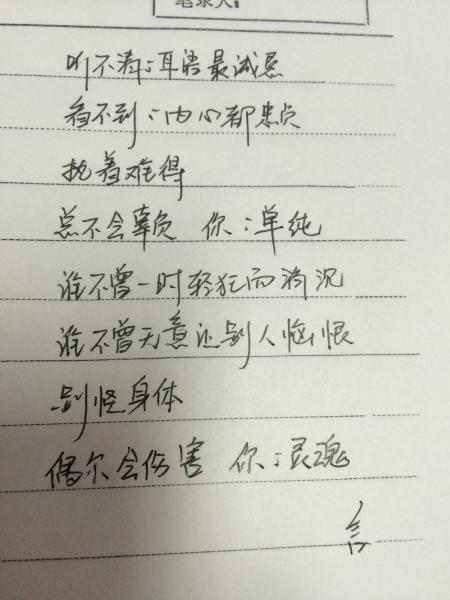 笔录人:
听不清的耳语最诚恳
看不到的内心都忠贞
执着难得
总不会辜负 你的单纯
谁不曾一时轻狂而消沉
谁不曾无意让别人恼恨
别怪身体
偶尔会伤害 你的灵魂